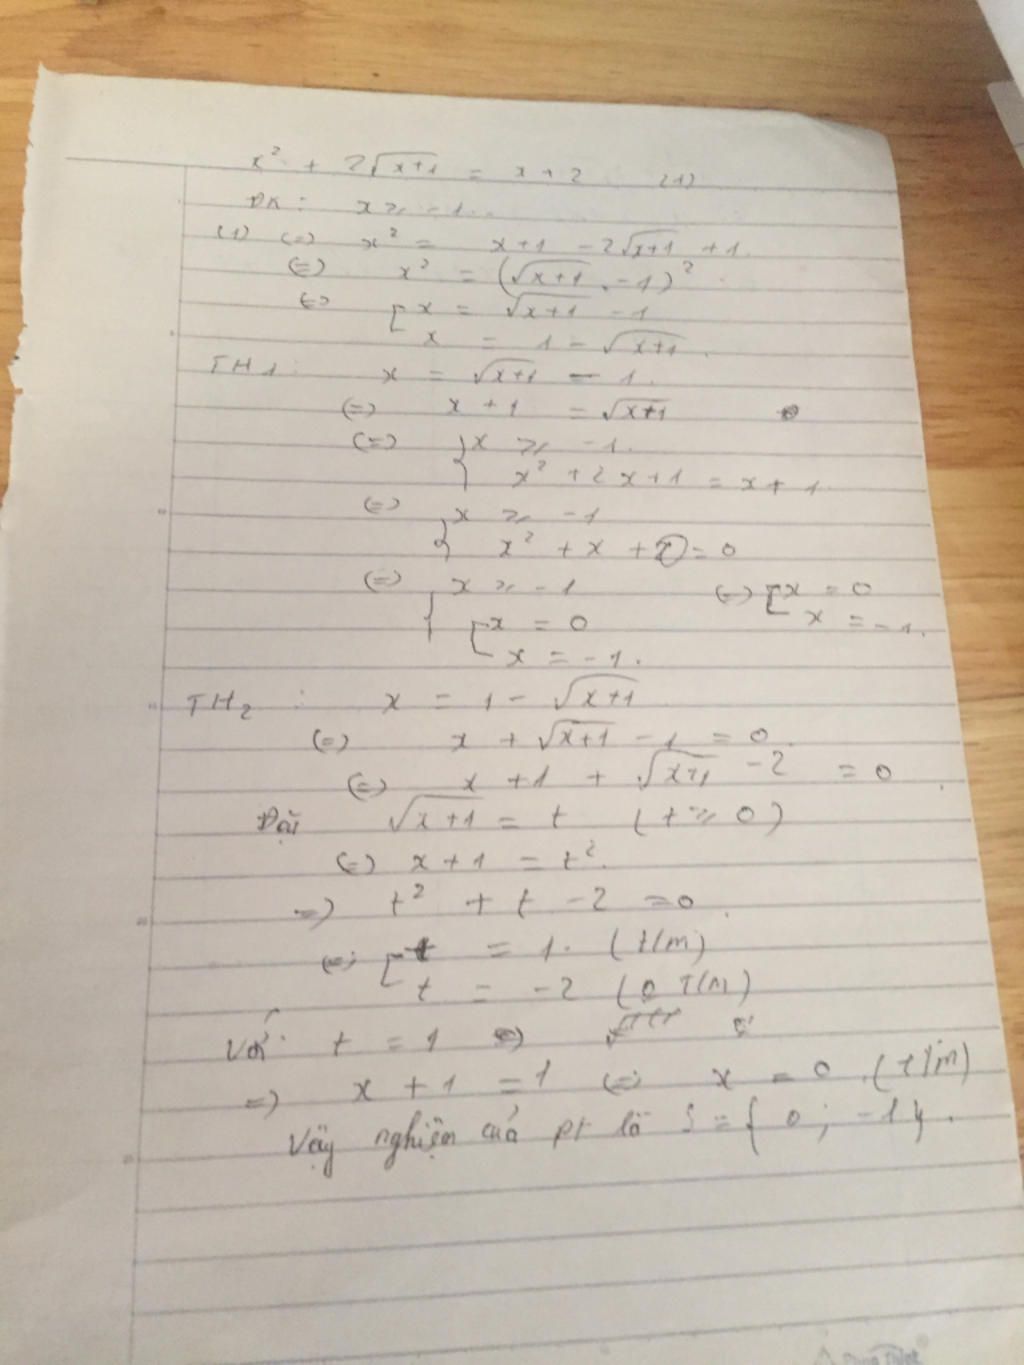 x² + 2√(x+1) = x + 2 (1)
ĐK: x ≥ -1.
(1) (=) x² = x+1 - 2√(x+1) + 1.
(=) x² = (√(x+1) - 1)²
(=) [ x = √(x+1) - 1
x = 1 - √(x+1).
TH1: x = √(x+1) - 1.
(=) x + 1 = √(x+1)
(=) { x ≥ -1.
x² + 2x + 1 = x + 1.
(=) { x ≥ -1
x² + x + = 0
(=) { x ≥ -1 (=) [ x = 0
[ x = 0 x = -1.
x = -1.
TH2: x = 1 - √(x+1)
(=) x + √(x+1) - 1 = 0.
(=) x + 1 + √(x+1) - 2 = 0.
Đặt √(x+1) = t (t ≥ 0)
(=) x + 1 = t².
=) t² + t - 2 = 0.
(=) [ t = 1. (t/m)
t = -2 (0 T/m)
Với t = 1
=) x + 1 = 1 (=) x = 0 (t/m)
Vậy nghiệm của pt là S = { 0; -1 }.